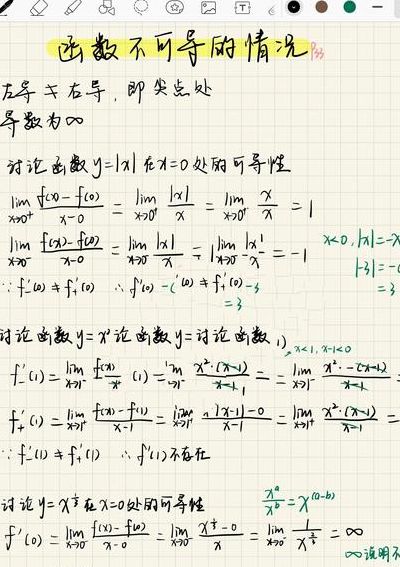 函数不可导的情况 P33
左导 ≠ 右导, 即尖点处
导数为∞
讨论函数 y=|x| 在 x=0 处的可导性
lim x→0⁺ f(x)-f(0)/x-0 = lim x→0⁺ |x|/x = lim x→0⁺ x/x = 1
lim x→0⁻ f(x)-f(0)/x-0 = lim x→0⁻ |x|/x = lim x→0⁻ = -1
x<0, |x|=-x
∵ f'₋(0) ≠ f'₊(0) ∴ f'(0)
= 3
讨论函数 y=x² 论函数 y=讨论函数
x<1, x-1<0
f'₋(1) = lim x→1⁻ f(x) (1) = x²·(x-1)/x-1 = = lim x→1⁻ x²·-(x-1)/x-1 =
f'₊(1) = lim x→1⁺ f(x)-f(1)/x-1 = |x-1|-0/x-1 = = lim x→1⁺ x²·(x-1)/x-1 =
∵ f'₋(1) ≠ f'₊(1) ∴ f'(1) 不存在
讨论 y=x^⅓ 在 x=0 处的可导性
xᵃ/xᵇ = x⁽ᵃ⁻ᵇ⁾
f'(0) = lim x→0 f(x)-f(0)/x-0 = lim x→0 x^⅓-0/x = lim x→0 1/x^⅔ = ∞
∞说明不